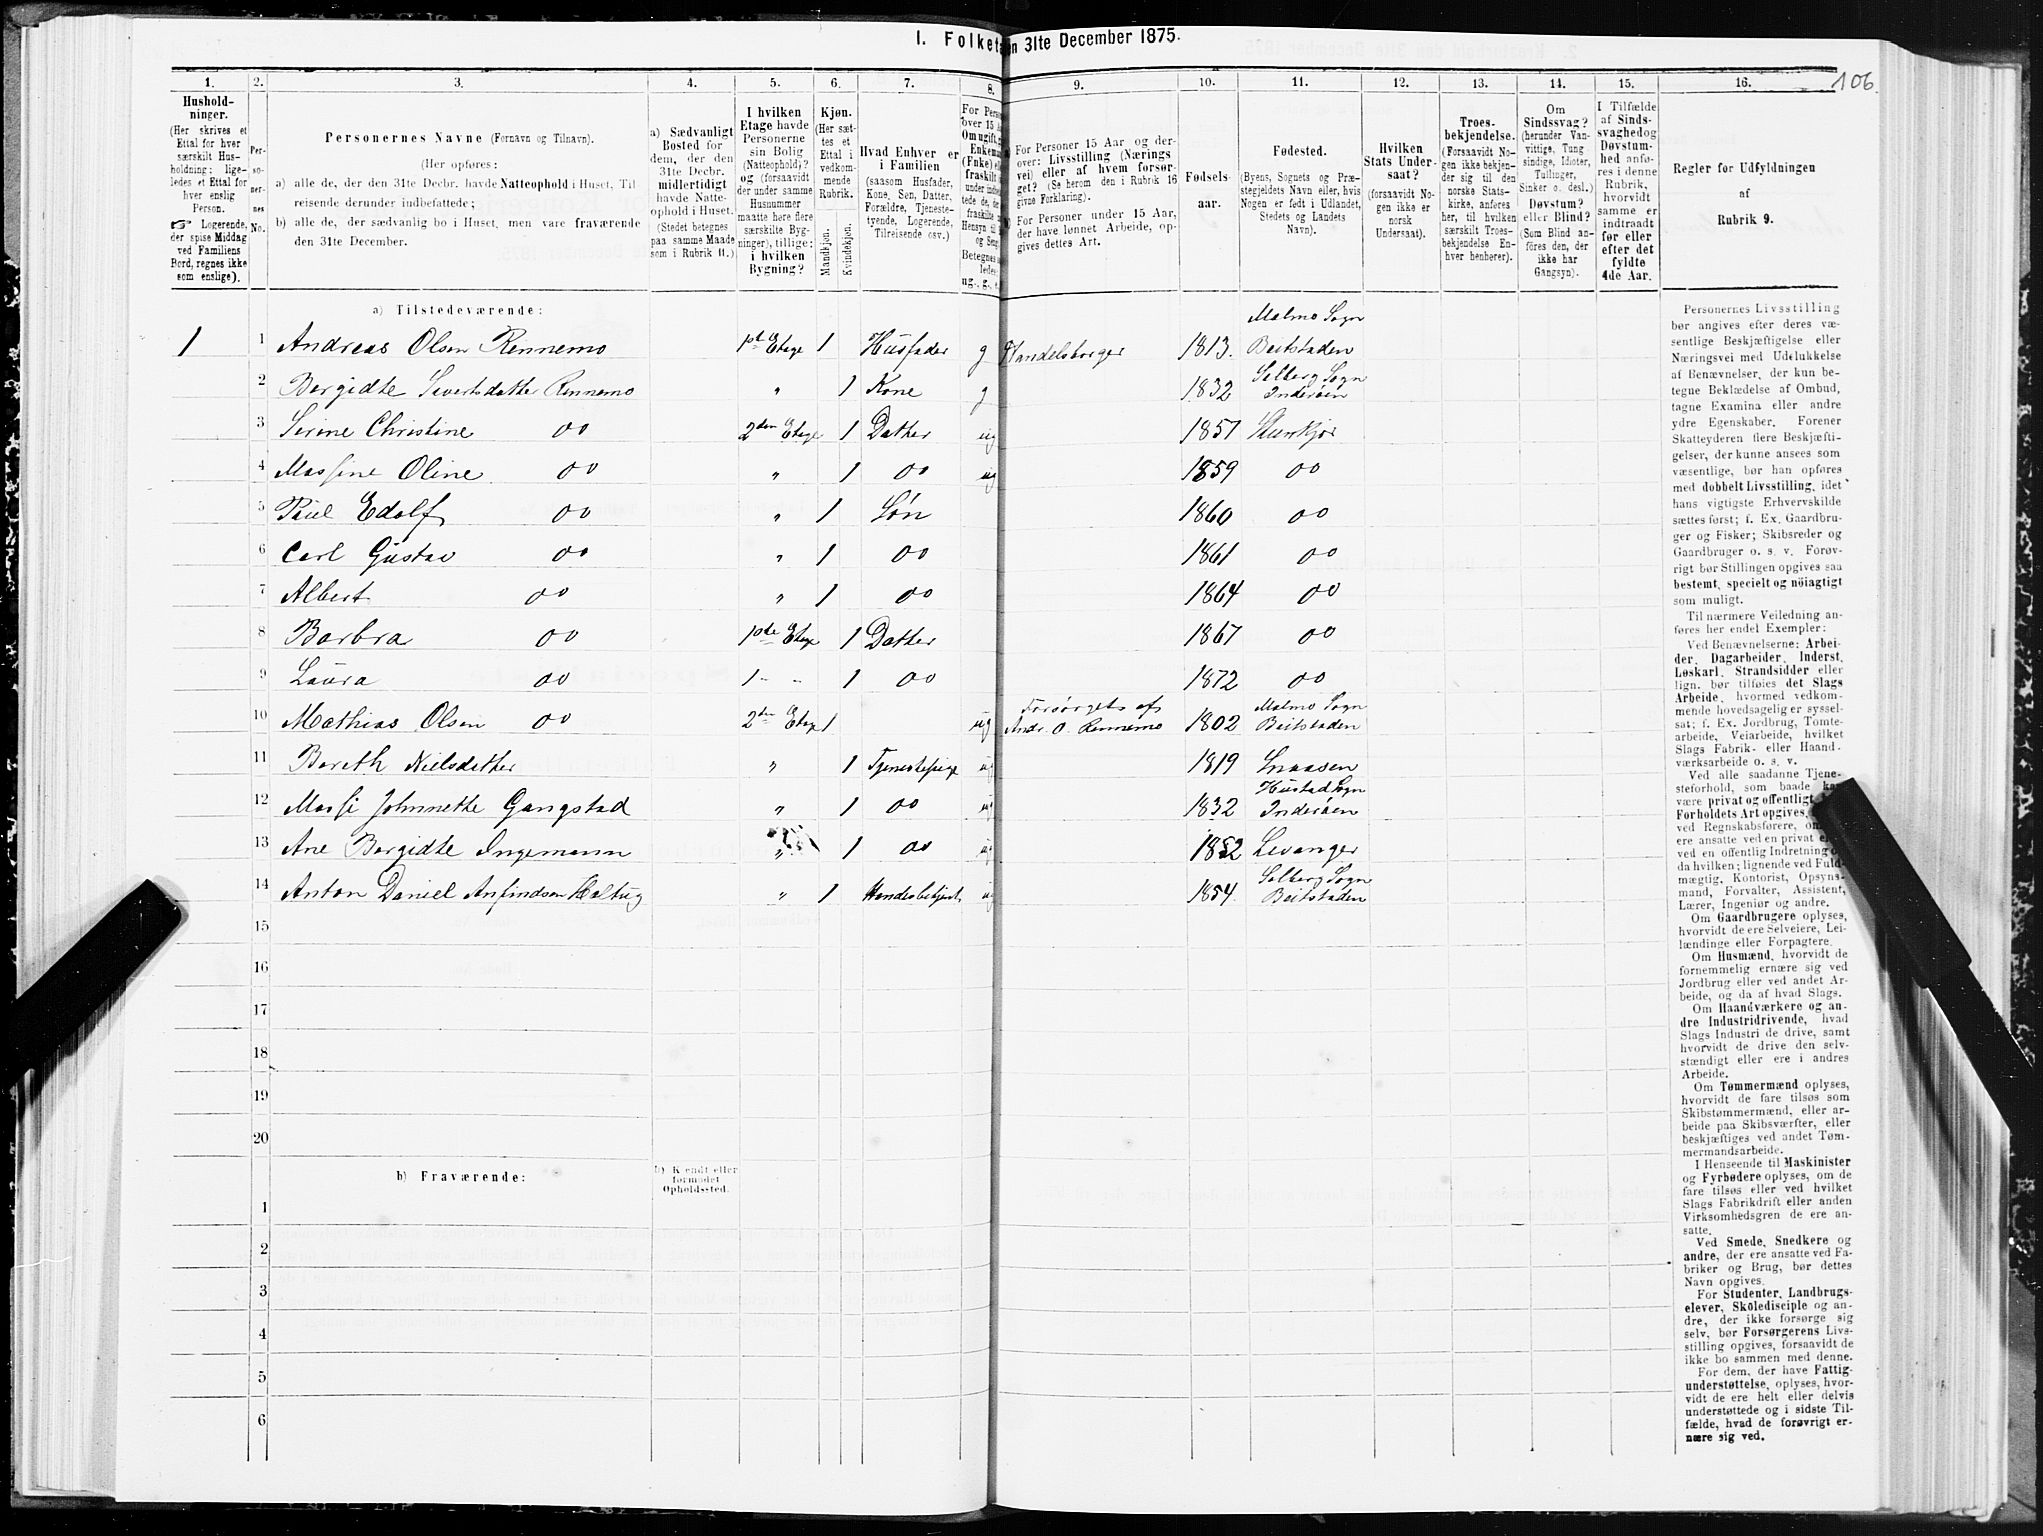 I. Folketæ
n 31te December 1875.
106.
1.
2.
3.
4.
5.
6.
7.
8.
9.
10.
11.
12.
13.
14.
15.
16.
Hushold-
ninger.
(Her skrives et
Ettal for hver
særskilt Hus-
holdning; lige-
ledes et Ettal for
hver enslig
Person.
☞ Logerende,
der spise Middag
ved Familiens
Bord, regnes ikke
som enslige).
Per-
so-
ner-
nes
No.
Personernes Navne (Fornavn og Tilnavn).
(Her opføres:
a) alle de, der den 31te Decbr. havde Natteophold i Huset, Til
reisende derunder indbefattede;
b) alle de, der sædvanlig bo i Huset, men vare fraværende
den 31te December.
a) Sædvanligt
Bosted for
dem, der den
31te Decbr.
midlertidigt
havde Natte-
ophold i Huset.
(Stedet betegnes
paa samme Maade
som i Rubrik 11.)
I hvilken
Etage havde
Personerne
sin Bolig
(Natteophold)?
og (forsaavidt
der under samme
Husnummer
maatte høre flere
særskilte Byg-
ninger), tillige:
i hvilken
Bygning?
Kjøn.
(Her sæt-
tes et
Ettal i
vedkom-
mende
Rubrik.
Mandkjøn.
Kvindekjøn.
Hvad Enhver er
i Familien
(saasom Husfader,
Kone, Søn, Datter,
Forældre, Tjeneste-
tyende, Logerende,
Tilreisende osv.)
For Perso
over 15 A
Om ugift,
Enkem
(Fnke)
fraskilt
under indbe
tede de, der
fraskilte
Hensyn til
og Seng
Betegnes
ledes:
ug., g., e.
For Personer 15 Aar og der-
over: Livsstilling (Nærings
vei) eller af hvem forsør-
get? (Se herom den i Rubrik 16
givne Forklaring).
For Personer under 15 Aar,
der have lønnet Arbeide, op-
gives dettes Art.
Fødsels-
aar.
Fødested.
(Byens, Sognets og Præ-
stegjeldets Navn eller, hvis
Nogen er født i Udlandet,
Stedets og Landets
Navn).
Hvilken
Stats Under-
saat?
(forsaavidt No-
gen ikke er
norsk
Undersaat).
Troes-
bekjendelse.
(Forsaavidt No-
gen ikke bekjen-
der sig til den
norske Stats-
kirke, anføres
her, til hvilken
særskilt Troes-
bekjendelse En-
hver henhører).
Om
Sindssvag?
(herunder Van-
vittige, Tung
sindige, Idioter,
Tullinger,
Sinker o. desl.)
Døvstum?
eller Blind?
(Som Blind an-
føres den, der
ikke har
Gangsyn).
I Tilfælde
af Sinds-
svaghed og
Døvstum-
hed anfø-
res i denne
Rubrik,
hvorvidt
samme er
indtraadt
før eller
efter det
fyldte
4de Aar.
Regler for Udfyldningen
af
Rubrik 9.
a) Tilstedeværende:
1 1 Andreas Olsen Rennemo 1ste Etage 1 Husfader g Handelsborger 1813. Malmo Sogn Beitstaden
2 Bergidte Sivertsdatter Rennemo " 1 Kone g 1832 Salberg Sogn Inderöen
3 Serine Christine do 2den Etage 1 Datter ug 1857 Stenkjør
4 Massine Oline do " 1 do ug 1859 do
5 Paul Edolf do " 1 Søn 1860 do
6 Carl Gustav do " 1 do 1861 do
7 Albert do " 1 do 1864 do
8 Barbra do 1ste Etage 1 Datter 1867 do
9 Laura do 1- - 1 do 1872 do
10 Mathias Olsen do 2den Etage 1 ug Forsørgets af Andr. O. Rennemo 1802 Malmo Sogn Beitstaden
11 Bereth Nielsdatter " 1 Tjenestepige ug 1819 Snaasen
12 Massi Johnnette Gangstad " 1 do ug 1832 Hustad Sogn Inderöen
13 Ane Bergidte Ingemann " 1 do ug 1852 Levanger
14 Anton Daniel Anfindsen Haltug " 1 Handesbetjent ug 1854. Salberg Sogn Beitstaden
15
16
17
18
19
20
b) Fraværende:
b) Kjendt eller
formodet
Opholdssted.
1
2
3
4
5
6
Personernes Livsstilling
bør angives efter deres væ-
sentlige Beskjæftigelse eller
Næringsvei med Udelukkelse
af Benævnelser, der kun be-
tegne Beklædelse af Ombud,
tagne Examina eller andre
ydre Egenskaber. Forener
Skatteyderen flere Beskjæfti-
gelser, der kunne ansees som
væsentlige, bør han opføres
med dobbelt Livsstilling, idet
hans vigtigste Erhvervskilde
sættes først; f. Ex. Gaardbru-
ger og Fisker; Skibsreder og
Gaardbruger o. s. v. Forøv-
rigt bør Stillingen opgives saa
bestemt, specielt og nöiagtigt
som muligt.
Til nærmere Veiledning an-
føres her endel Exempler:
Ved Benævnelserne: Arbei-
der, Dagarbeider, Inderst,
Løskarl, Strandsidder eller
lign. bør tilføies det Slags
Arbeide, hvormed vedkom-
mende hovedsagelig er syssel-
sat; f. Ex. Jordbrug, Tomte-
arbeide, Veiarbeide, hvilket
Slags Fabrik- eller Haand-
værksarbeide o. s. v.
Ved alle saadanne Tjene-
steforhold, som baade kan
være privat og offentligt,
Forholdets Art opgives,
ved Regnskabsførere, om
ere ansatte ved en privat
ved en offentlig Indretning
da hvilken; lignende ved Fuld-
mægtig, Kontorist, Opsyns-
mand, Forvalter, Assistent,
Lærer, Ingeniør og andre.
Om Gaardbrugere oplyses,
hvorvidt de ere Selveiere, Lei-
lændinge eller Forpagtere.
Om Husmænd, hvorvidt de
fornemmelig ernære sig ved
Jordbrug eller ved andet Ar-
beide, og da af hvad Slags.
Om Haandværkere og an-
dre Industridrivende, hvad
Slags Industri de drive, samt
hvorvidt de drive den selv-
stændigt eller ere i andres
Arbeide.
Om Tømmermænd oplyses,
hvorvidt de fare tilsøs som
Skibstømmermænd, eller ar-
beide paa Skibsværfter, eller
beskjæftiges ved andet Tøm-
mermandsarbeide.
I Henseende til Maskinister
og Fyrbødere oplyses, om de
fare tilsøs eller ved hvilket
Slags Fabrikdrift eller anden
Virksomhedsgren de ere an-
satte.
Ved Smede, Snedkere og
andre, der ere ansatte ved Fa-
briker og Brug, bør dettes
Navn opgives.
For Studenter, Landbrugs-
elever, Skoledisciple og an-
dre, der ikke forsørge sig
selv, bør Forsørgerens Livs-
stilling opgives, forsaavidt de
ikke bo sammen med denne.
For dem, der have Fattig-
understøttelse, oplyses, hvor-
vidt de ere helt eller delvis
understøttede og i sidste Til-
fælde, hvad de forøvrigt er-
nære sig ved.